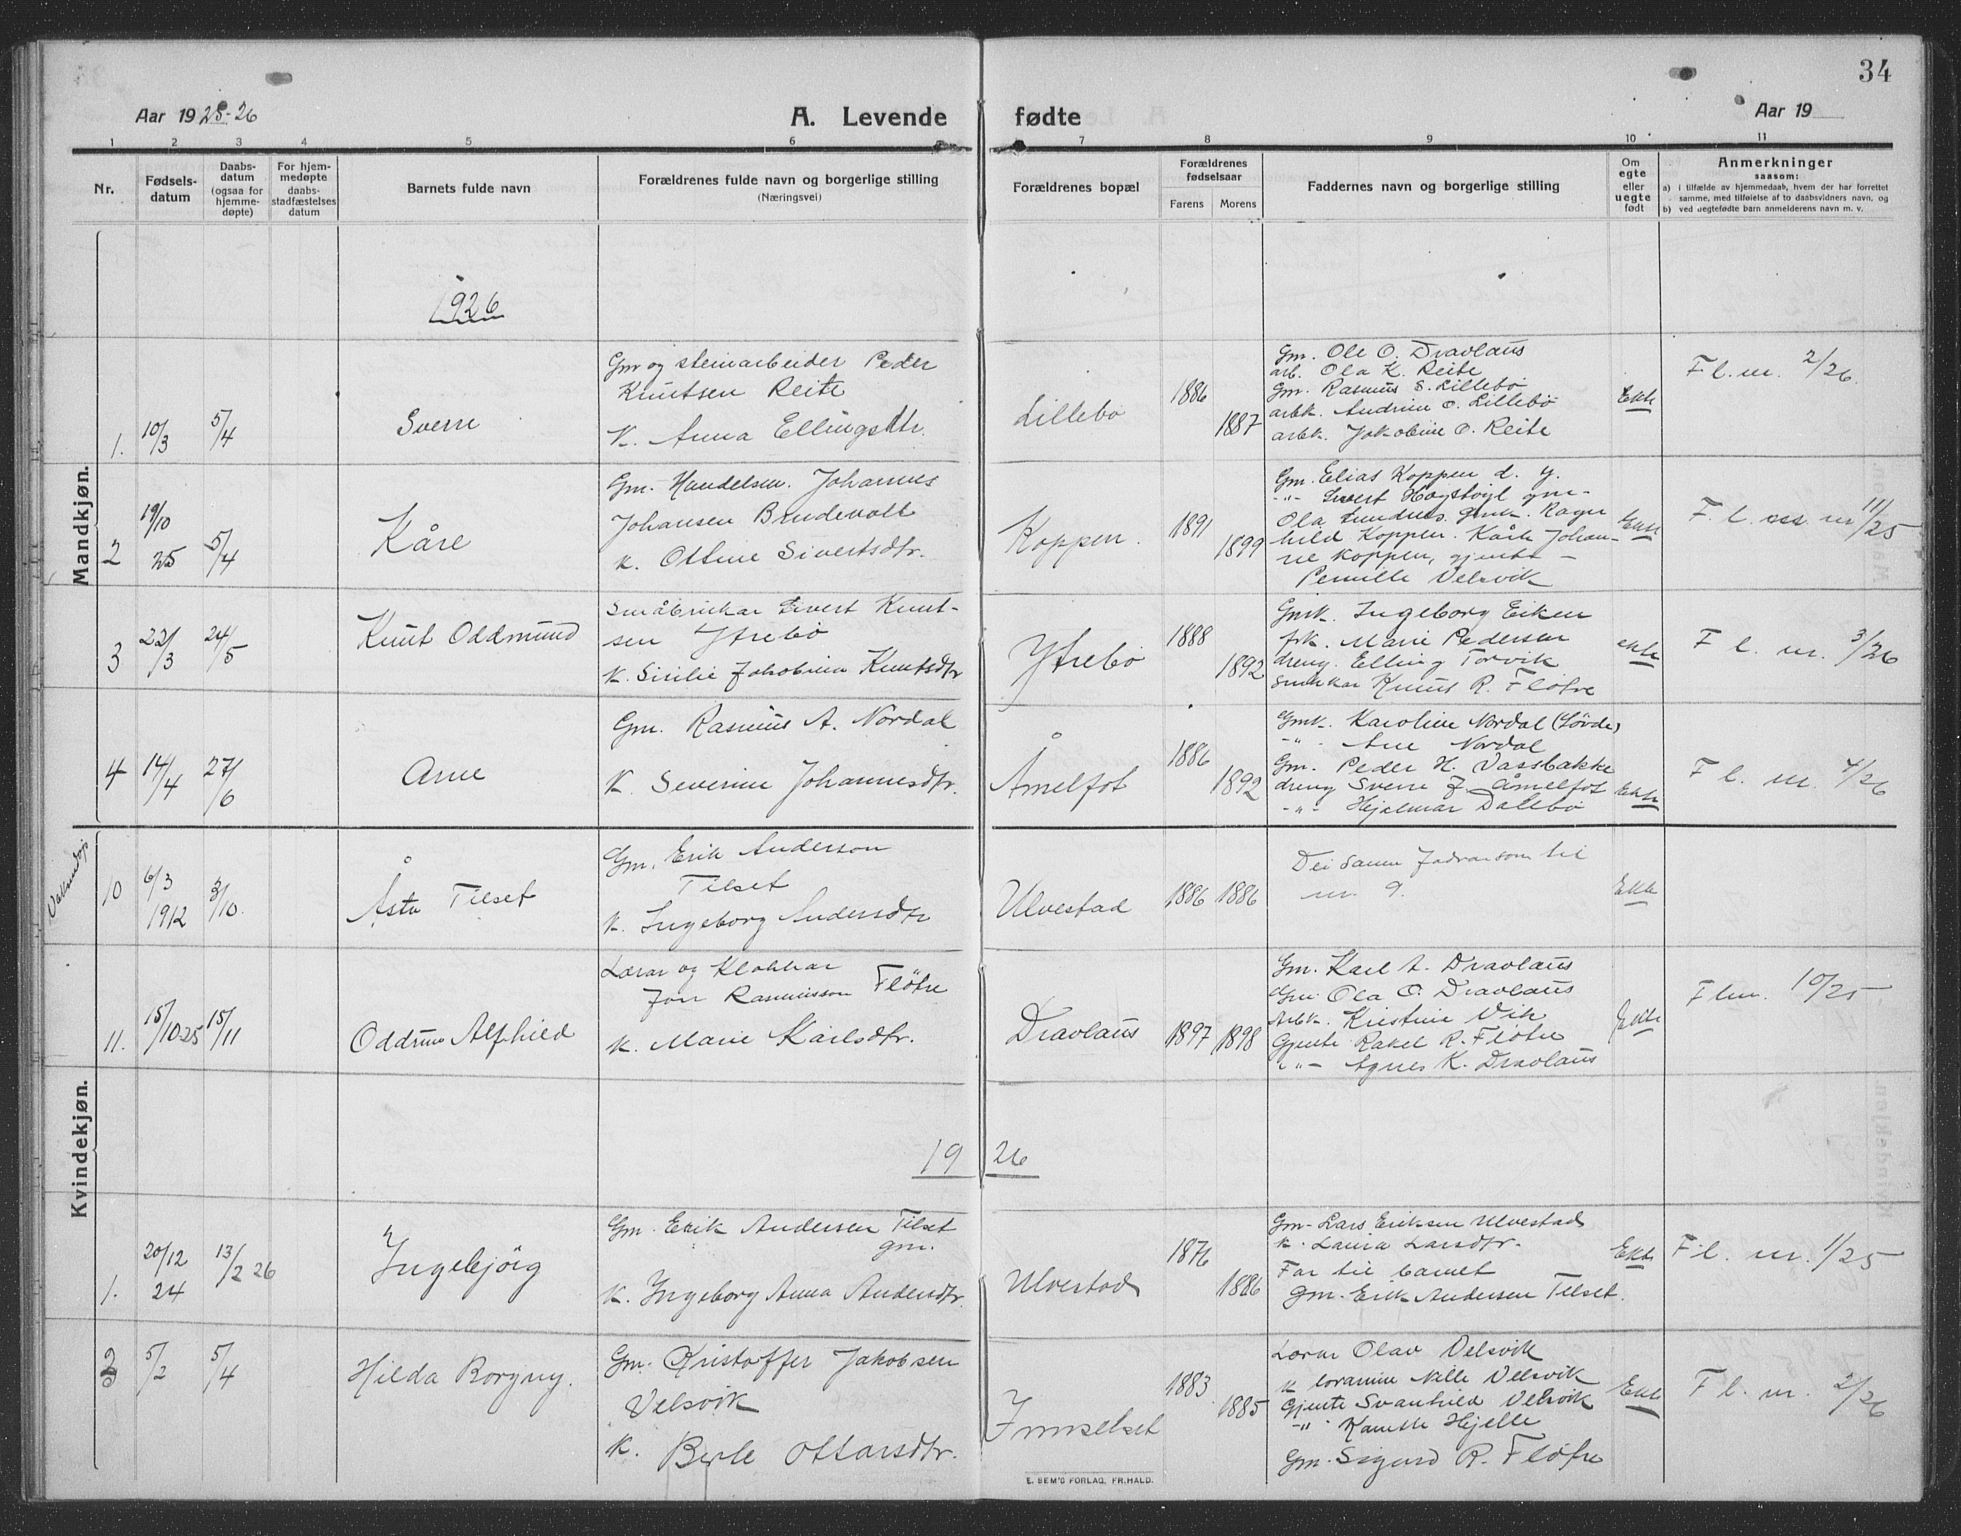 34
Aar 1925-26
A. Levende fødte
Aar 19
1 2 3 4 5 6 7 8 9 10 11
Nr.
Fødsels-
datum
Daabs-
datum
(ogsaa for
hjemme-
døpte)
For hjem-
medøpte
daabs-
stadfæstelses
datum
Barnets fulde navn
Forældrenes fulde navn og borgerlige stilling
(Næringsvei)
Forældrenes bopæl
Forældrenes
fødselsaar
Farens Morens
Faddernes navn og borgerlige stilling
Om
egte
eller
uegte
født
Anmerkninger
saasom:
a) i tilfælde av hjemmedaab, hvem der har forrettet
samme, med tilføielse af to daabsvidners navn, og
b) ved uegtefødte barn anmelderens navn m. v.
Mandkjøn.
1926
1. 10/3 5/4
Sverre
Gm og steinarbeider Peder
Knutsen Reite
K. Anna Ellingsdtr.
Lillebø
1886
1887
Gm. Ole O. Dravlaus
arb. Ola K. Reite
Gm. Rasmus S. Lillebø
arbk. Andrine O. Lillebø
arbk. Jakobine O. Reite
Ekte
F l. nr. 2/26.
2 19/10
25
5/4
Kåre
Gm. Handelsm. Johannes
Johansen Brudevoll
K. Ottine Sivertsdtr.
Koppen.
1891
1899
Gm. Elias Koppen d. y.
-"- Sivert Hogstøyl gm-
Ola Lundnes. gmk. Ragn
hild Koppen. Kårle Johan-
ne Koppen, gjente-
Pernille Velsvik
Ekte
F. l. nr 11/25
3 22/3 24/5
Knut Oddmund
Småbrukar Sivert Knut-
sen Ytrebø
K. Sirilie Jakobine Knutsdtr
Ytrebø
1888
1892
Gmk. Ingeborg Eiken
frk. Marie Pedersen
dreng. Elling Torvik
Smbkar Knut R. Fløtre
ekte
F l. nr. 3/26
4 14/4 27/6
Arne
Gm. Rasmus A. Nordal
K. Severine Johannesdtr.
Åmelfot
1886
1892
Gmk. Karoline Nordal (Søvde)
-"- Ane Nordal
Gm. Peder H. Vassbakke
dreng Sverre J. Åmelfot
-"- Hjalmar Dalebø
Ekte
F l. nr. 4/26
Kvindekjøn.
Vaksendåp
10 6/3
1912
3/10.
Åsta Tilset
Gm. Erik Anderson
Tilset
K. Ingeborg Andersdtr
Ulvestad
1886 1886
Dei same fadrar som til
nr. 9.
Ekte
11. 15/10 25 15/11
Oddrun Alfhild
Lærar og Klokkar
Jon Rasmusson Fløtre
K. Marie Karlsdtr.
Dravlaus
1897 1898
Gm. Karl A. Dravlaus
Gm. Ola O. Dravlaus
Arbk. Kristine Vik
Gjente Rakel R. Fløtre
-"- Agnes K. Dravlaus
Ekte
F l nr. 10/25
1926
1. 20/12
24
13/2 26
Ingebjørg
Gm. Erik Andersen Tilset
gm.
K. Ingeborg Anna Andersdtr.
Ulvestad
1876
1886
Gm- Lars Eriksen Ulvestad
K. Laura Larsdtr.
Far til barnet
Gm. Erik Andersen Tilset.
Ekte
F l. nr. 1/25
2 5/2 5/4
Hilda Borgny.
Gm. Kristoffer Jakobsen
Velsvik
K. Berle Ottarsdtr.
Innselset
1883
1885
Lærar Olav Velsvik
K Nille Velsvik
Gjente Svanhild Velsvik
-"- Hjelle
Gm. Sigurd R. Fløtre
Ekte
F l. nr. 2/26
E. SEM'S FORLAG, FR.HALD.